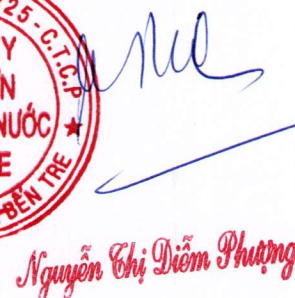 25 - C.T.C.P
Y
N
NƯỚC
E
BẾN TRE
Nguyễn Thị Diễm Phượng